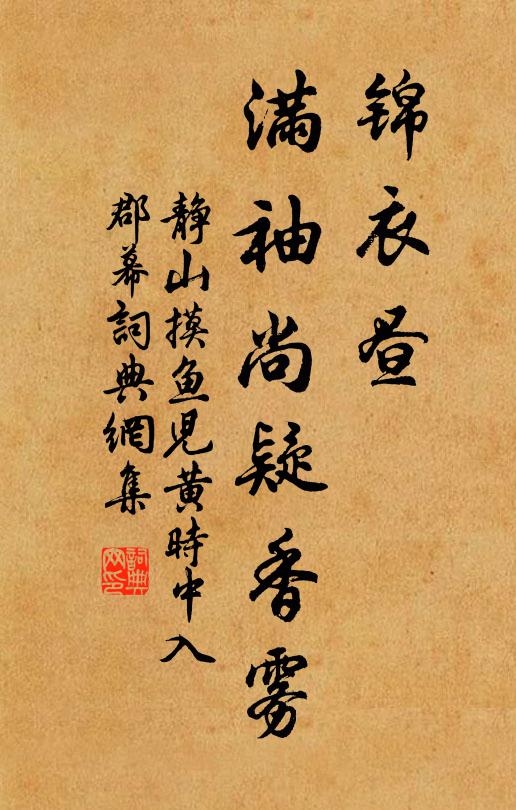 锦衣昼
满袖尚疑香雾
静山摸鱼児黄時中入
郡幕詞典網集
詞典网印